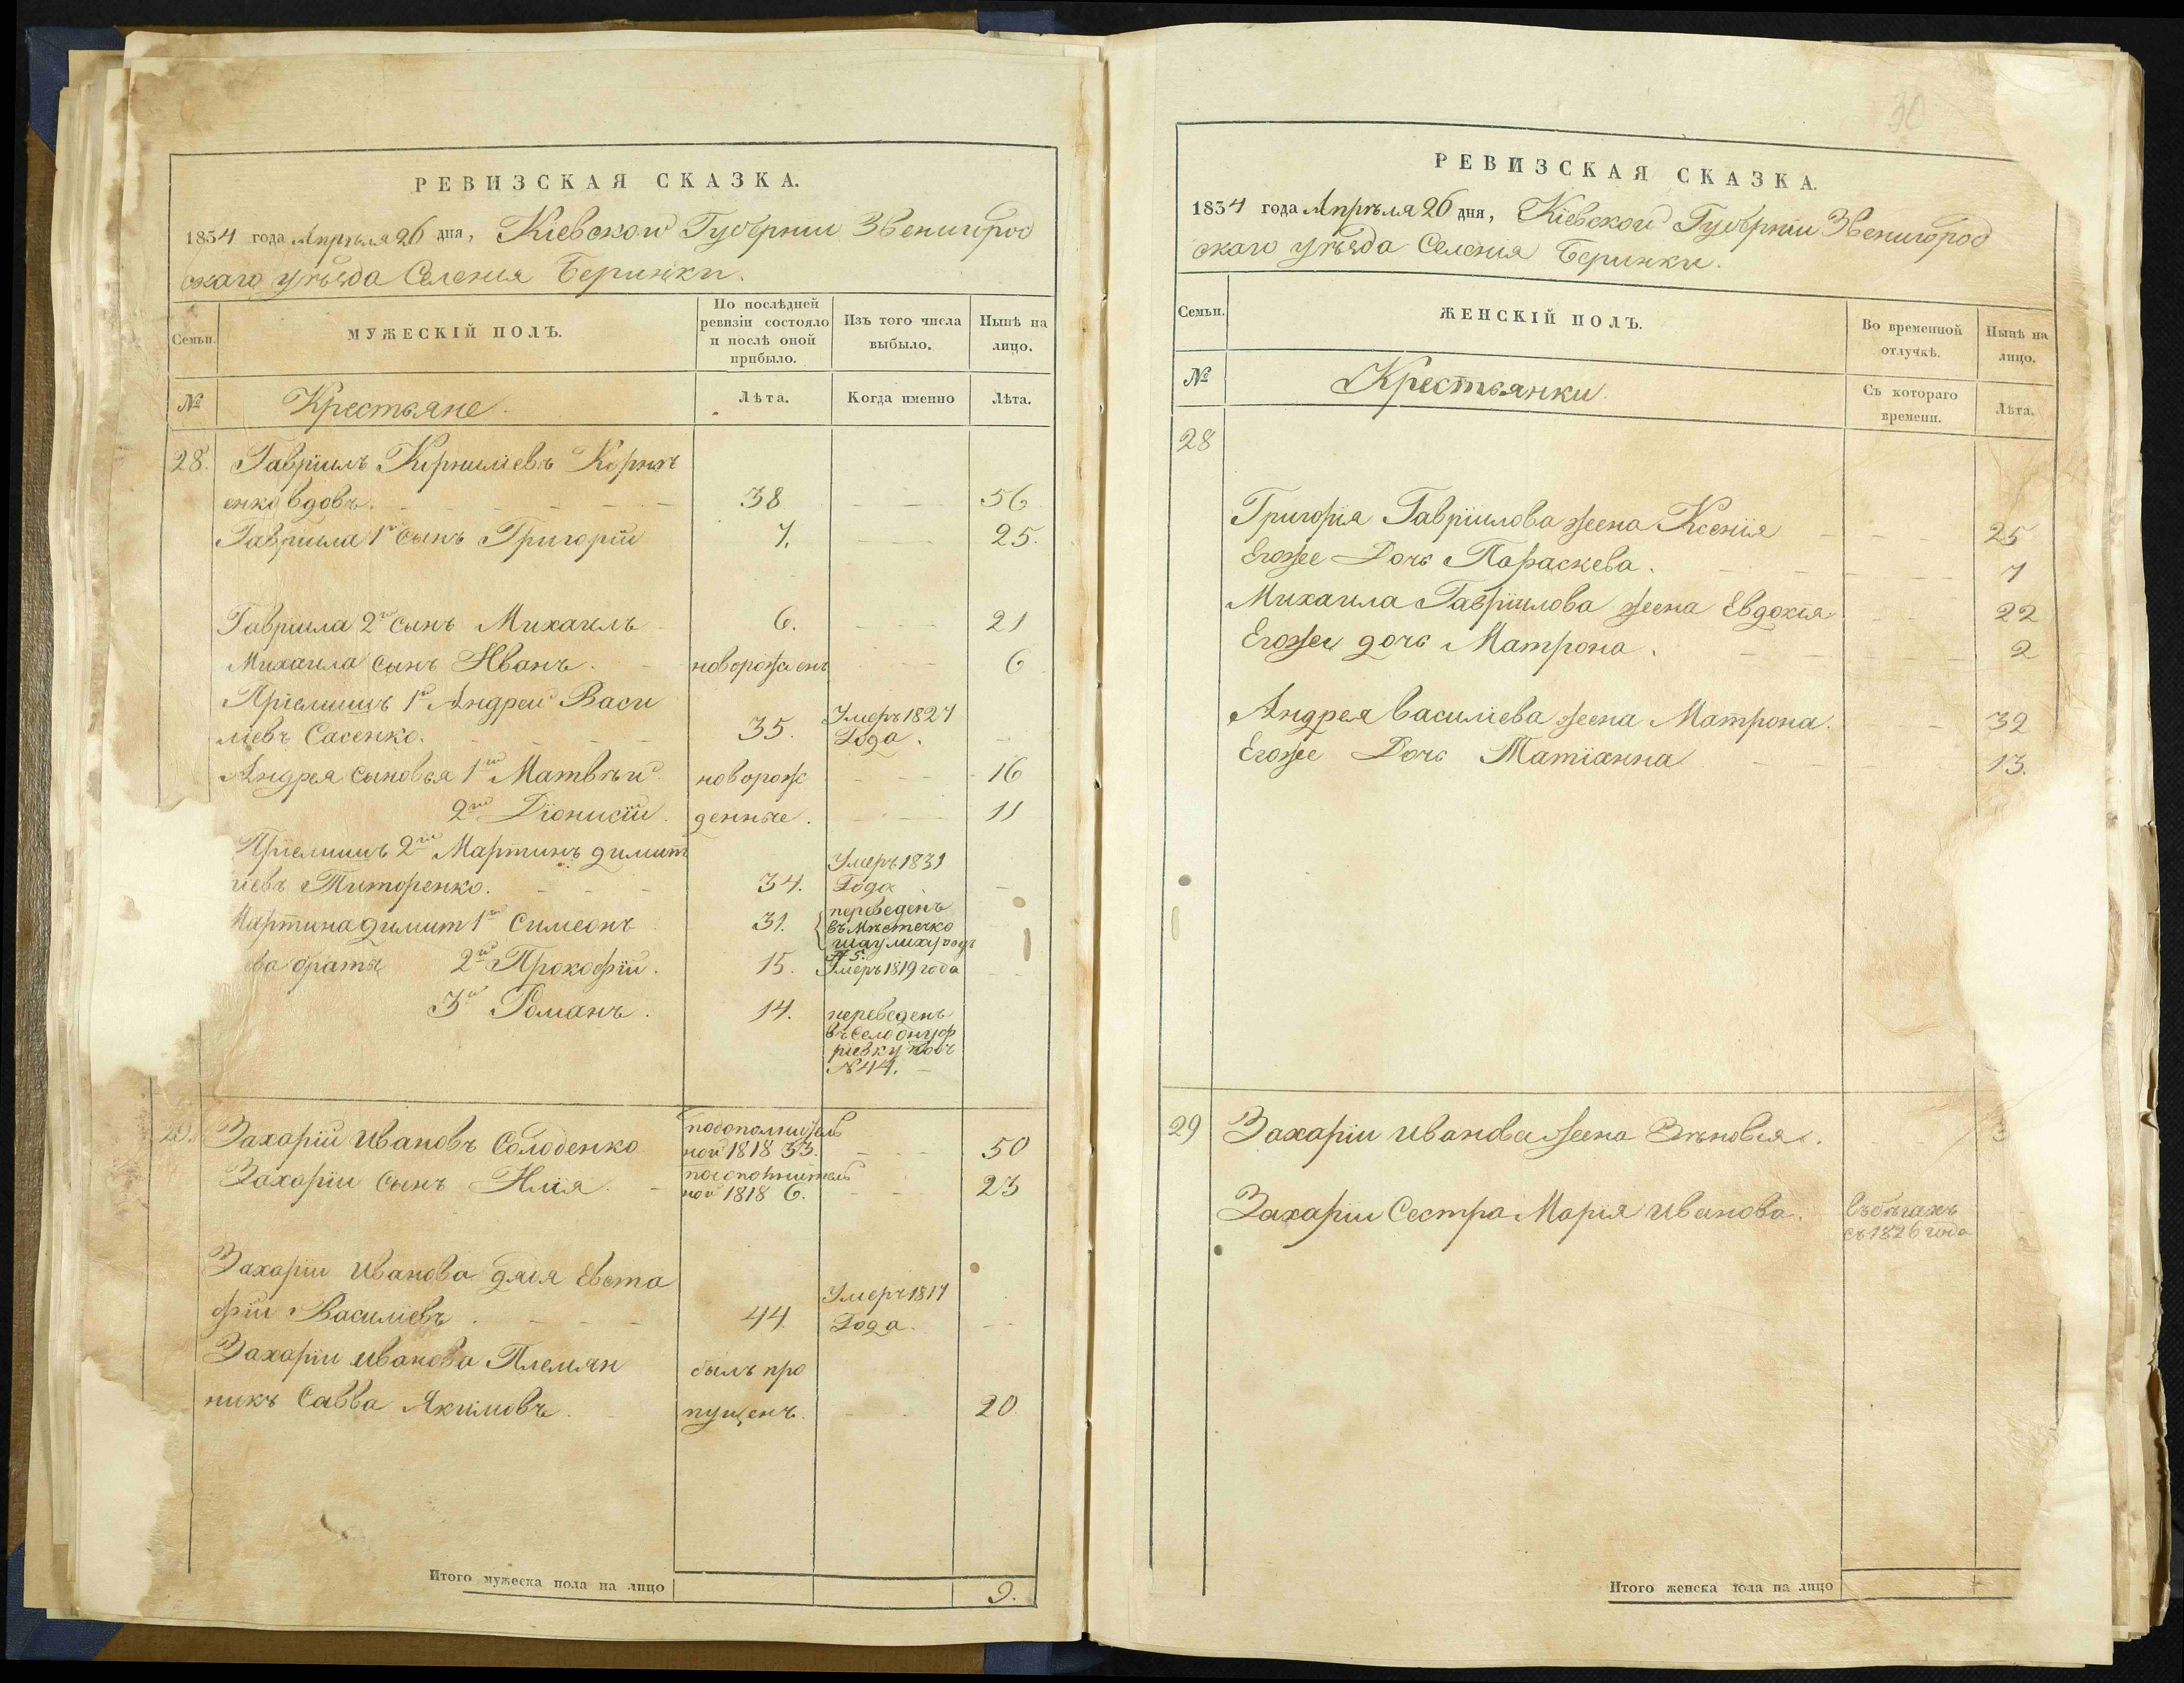 РЕВИЗСКАЯ СКАЗКА.
1834 года Апрѣля 26 дня, Кіевской Губерніи Звенигород
скаго уѣзда Селенія Беринки.
Семьи.
МУЖЕСКІЙ ПОЛЪ.
По послѣдней
ревизіи состояло
и послѣ оной
прибыло.
Изъ того числа
выбыло.
Нынѣ на
лицо.
№
Крестьяне.
Лѣта.
Когда именно
Лѣта.
28. Гавріилъ Корниліевъ
енко вдовъ. 38 56
Гавріила 1й Сынъ Григорій 7. 25.
Гавріила 2й Сынъ Михаилъ 6. 21
Михаила Сынъ Иванъ. новорожденъ 6
Пріемышъ 1й Андрей Васи
ліевъ Сасенко. 35. Умеръ 1827 Года.
Андрея Сыновья 1й Матвѣй новорож 16
2й Діонисій. денные. 11
Пріемышъ 2й Мартинъ димит
ріевъ Титоренко. 34. Умеръ 1831 Года
Мартина димит 1й Симеонъ 31. переведенъ
въ Мѣстечко
подъ
№ 5.
ева братья 2й Прокофій. 15. Умеръ 1819 года
3й Романъ. 14. переведенъ
въ Село Онуф
ріевку подъ
№ 44.
29. Захарій Ивановъ Солоденко по дополнитель
ной 1818 33. 50
Захарія Сынъ Илія. по дополнитель
ной 1818 6. 23
Захарія Иванова дядя Евста
фій Василіевъ. 44 Умеръ 1817 Года.
Захарія Иванова Племян былъ про
никъ Савва Якимовъ. пущенъ. 20
Итого мужеска пола на лицо 9.
30
РЕВИЗСКАЯ СКАЗКА.
1834 года Апрѣля 26 дня, Кіевской Губерніи Звенигород
скаго уѣзда Селенія Беринки.
Семьи.
ЖЕНСКІЙ ПОЛЪ.
Во временной
отлучкѣ.
Нынѣ на
лицо.
№
Крестьянки.
Съ котораго
времени.
Лѣта.
28
Григорія Гавріилова жена Ксенія 25
Егоже Дочь Параскева. 7
Михаила Гавріилова жена Евдокія 22
Егоже дочь Матрона. 2
Андрея Василіева жена Матрона. 32
Егоже Дочь Матіанна 13.
29 Захарія Иванова жена Зѣновья. 3
Захарія Сестра Марія Иванова. Въ бѣгахъ
съ 1826 года
Итого женска пола на лицо